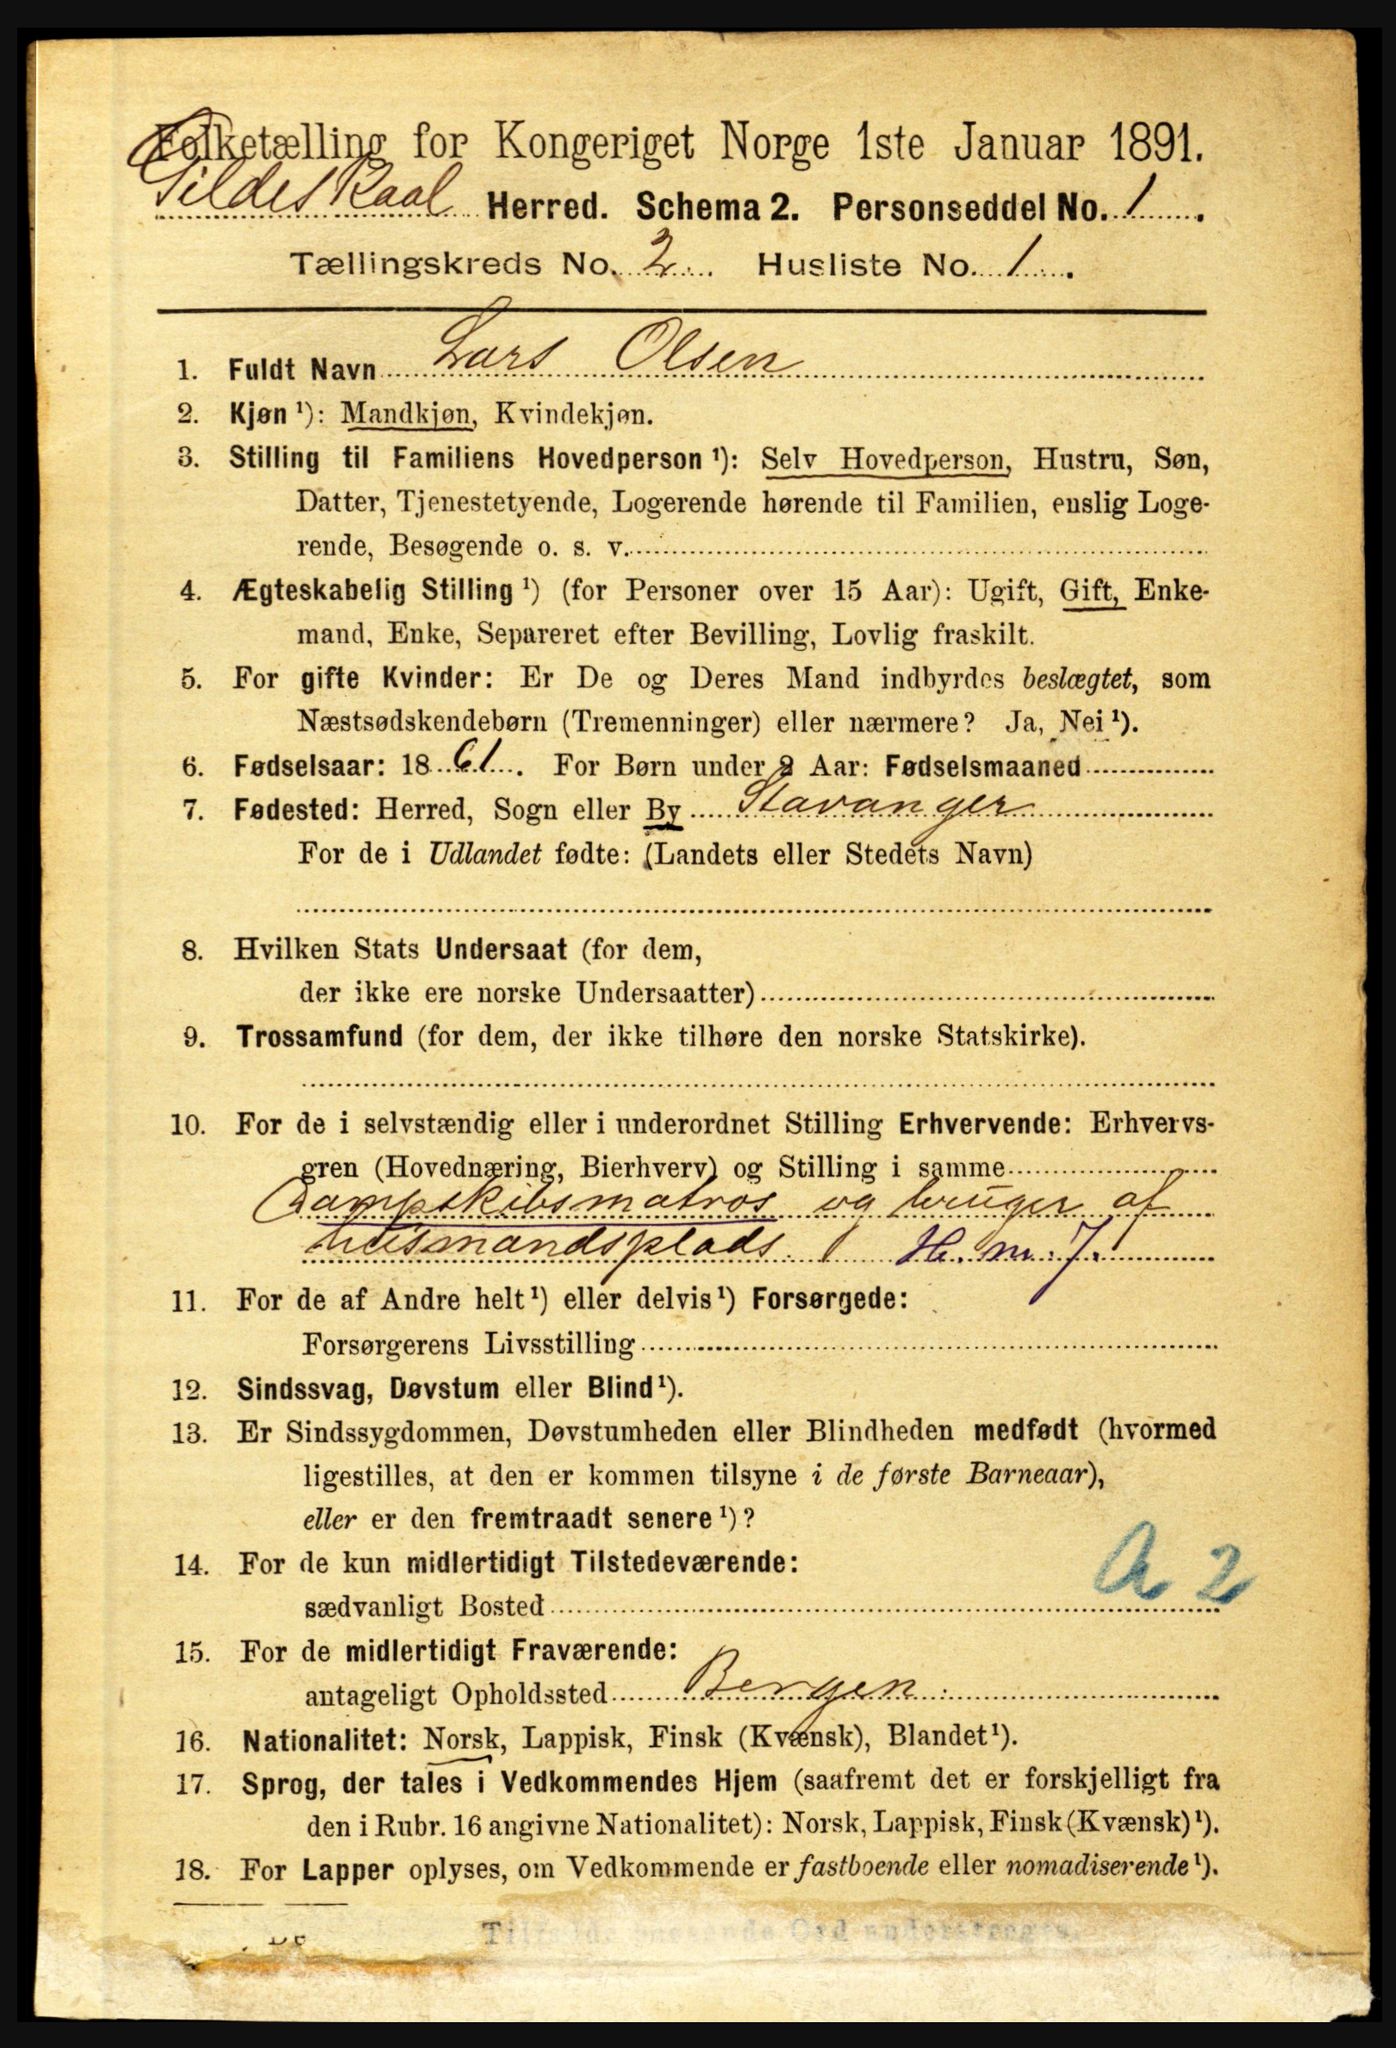 Folketælling for Kongeriget Norge 1ste Januar 1891.
Gildeskaal Herred. Schema 2. Personseddel No. 1.
Tællingskreds No. 2. Husliste No. 1.
1. Fuldt Navn Lars Olsen
2. Kjøn ¹): Mandkjøn, Kvindekjøn.
3. Stilling til Familiens Hovedperson ¹): Selv Hovedperson, Hustru, Søn,
Datter, Tjenestetyende, Logerende hørende til Familien, enslig Loge-
rende, Besøgende o. s. v.
4. Ægteskabelig Stilling ¹) (for Personer over 15 Aar): Ugift, Gift, Enke-
mand, Enke, Separeret efter Bevilling, Lovlig fraskilt.
5. For gifte Kvinder: Er De og Deres Mand indbyrdes beslægtet, som
Næstsødskendebørn (Tremenninger) eller nærmere? Ja, Nei ¹).
6. Fødselsaar: 1861. For Børn under 2 Aar: Fødselsmaaned
7. Fødested: Herred, Sogn eller By Stavanger
For de i Udlandet fødte: (Landets eller Stedets Navn)
8. Hvilken Stats Undersaat (for dem,
der ikke ere norske Undersaatter)
9. Trossamfund (for dem, der ikke tilhøre den norske Statskirke).
10. For de i selvstændig eller i underordnet Stilling Erhvervende: Erhvervs-
gren (Hovednæring, Bierhverv) og Stilling i samme
Dampskibsmatros og bruger af
husmandsplads. H. m. 7.
11. For de af Andre helt ¹) eller delvis ¹) Forsørgede:
Forsørgerens Livsstilling
12. Sindssvag, Døvstum eller Blind ¹).
13. Er Sindssygdommen, Døvstumheden eller Blindheden medfødt (hvormed
ligestilles, at den er kommen tilsyne i de første Barneaar),
eller er den fremtraadt senere ¹)?
14. For de kun midlertidigt Tilstedeværende:
sædvanligt Bosted
A 2
15. For de midlertidigt Fraværende:
antageligt Opholdssted Bergen.
16. Nationalitet: Norsk, Lappisk, Finsk (Kvænsk), Blandet ¹).
17. Sprog, der tales i Vedkommendes Hjem (saafremt det er forskjelligt fra
den i Rubr. 16 angivne Nationalitet): Norsk, Lappisk, Finsk (Kvænsk) ¹).
18. For Lapper oplyses, om Vedkommende er fastboende eller nomadiserende ¹).
De Ord understreges.